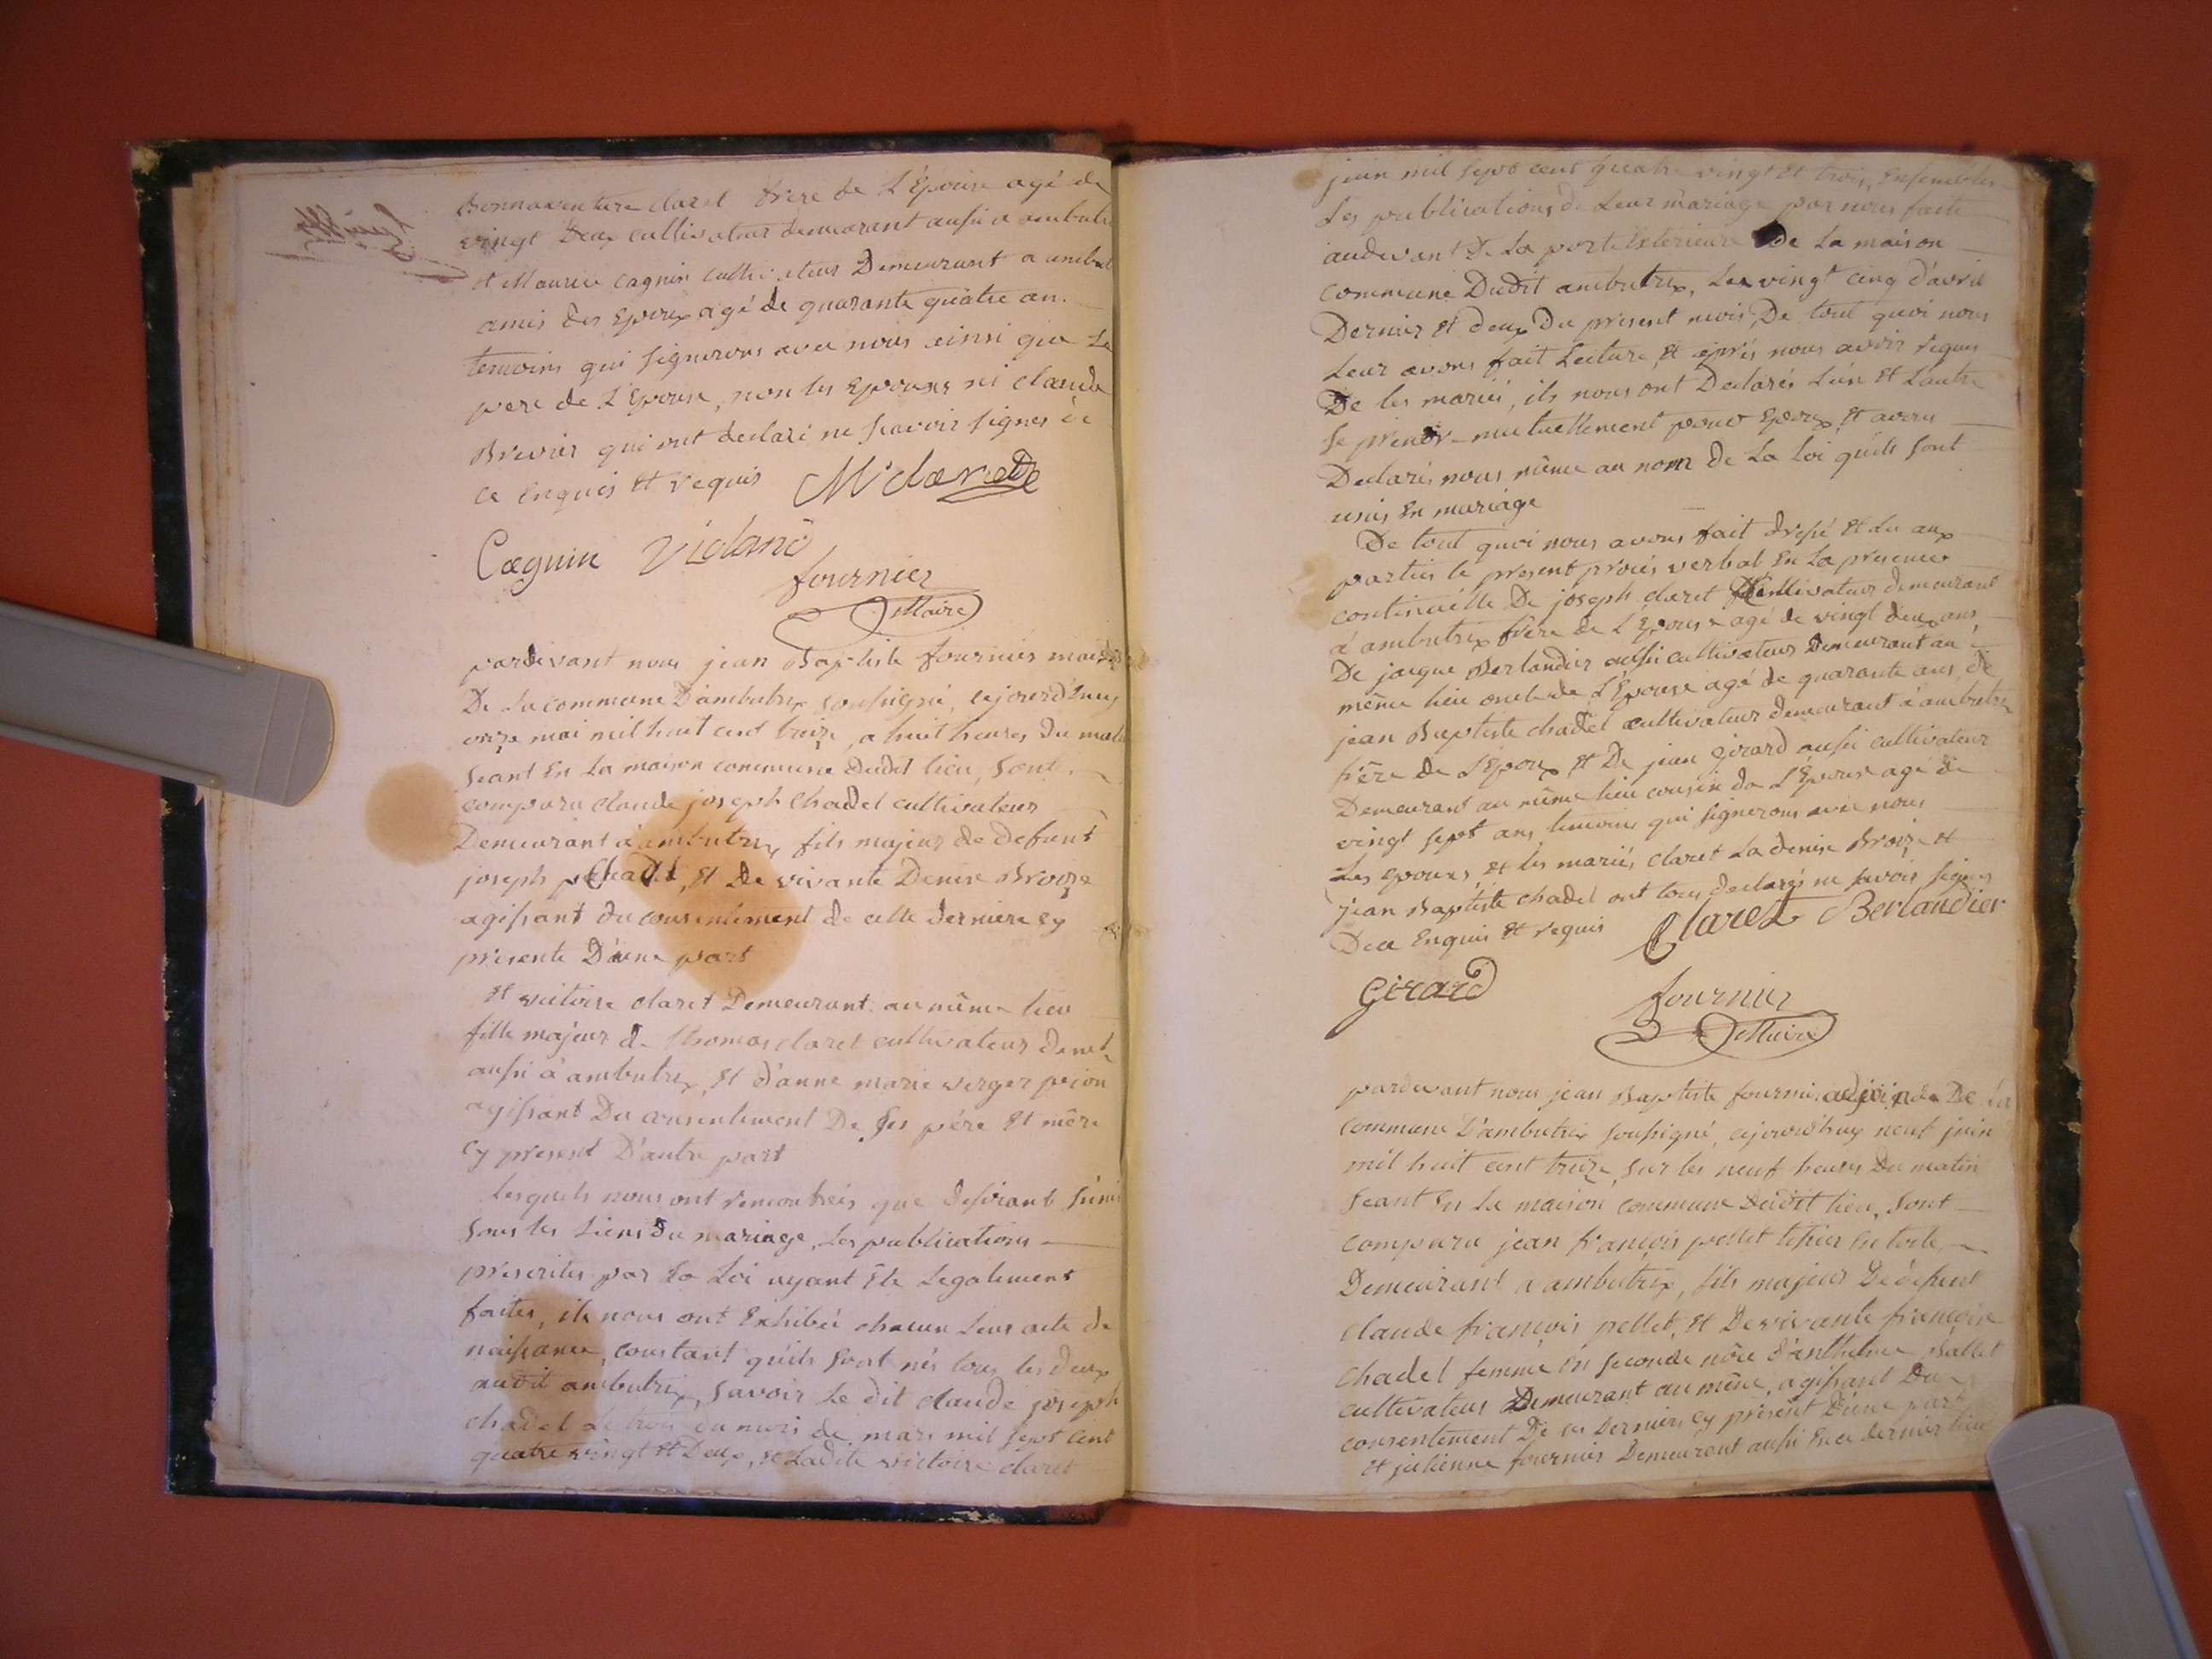 Bonnaventure claret frère de L'Epouse agé de
vingt Deux cultivateur demeurant aussi a ambutri
et Maurice Cagnin cultivateur Demeurant a ambut
amis des Epoux agé de quarante quatre an
temoins qui signerons avec nous ainsi que Le
pere de L'Epouse, non les Epouxs ni claude
Brevier qui ont declaré ne scavoir signer de
ce Enquis et requis M claret
Cagnin Violand
fournier
Maire
pardevant nous jean Baptiste fournier maire
De La commune D'ambutrix soussigné, cejourd'huy
onze mai mil huit cent treize, a huit heures du matin
seant En La maison commune dudit lieu, sont
comparu claude joseph Chadel cultivateur
Demeurant à ambutrix fils majeur de defunt
joseph Chadel, Et De vivante Denise Broize
agissant du consentement de cette derniere cy
presente D'une part
Et victoire claret Demeurant au même lieu
fille majeur de thomas claret cultivateur demt
aussi à ambutrix, Et d'anne marie verger
agissant Du consentement De ses père Et mère
cy present D'autre part
lesquels nous ont remontrés que desirant s'unir
sous les Liens du mariage, Les publications
prescrites par La Loi ayant Été Legalement
faites, ils nous ont Exhibés chacun Leur acte de
naissance, constant qu'ils sont nés tous les deux
audit ambutrix, savoir Le dit claude joseph
chadel Le trois du mois de mars mil sept cent
quatre vingt Et Deux, et Ladite victoire claret
juin mil sept cent quatre vingt Et trois, Ensembles
Les publications de Leur mariage par nous faite
audevant De La porte Exterieure De La maison
commune Dudit ambutrix, Les vingt cinq d'avril
Dernier Et deux Du present mois, De tout quoi nous
Leur avons fait Lecture, Et après nous avoir requis
De les mariés, ils nous ont Declarés L'un Et L'autre
se prendr mutuellement pour Epoux, Et avons
Declarés nous même au nom de La Loi qu'ils sont
unis En mariage
De tout quoi nous avons fait dressé Et Lu aux
parties le present procés verbal En La presence
continuélle De joseph claret cultivateur demeurant
à ambutrix frère de L'Epouse agé de vingt deux ans,
De jaque Berlandier aussi cultivateur Demeurant au
même lieu oncle de L'Epouse agé de quarante ans, de
jean Baptiste chadel cultivateur demeurant à ambutrix
frère de L'Epoux Et De jean girard aussi cultivateur
Demeurant au même lieu cousin de L'Epouse agé de
vingt sept ans, temoins qui signerons avec nous
Les Epouxs, et les mariés claret La denise Broize et
jean Baptiste chadel ont tous declarés ne savoir signer
De ce Enquis Et requis Claret Berlandier
Girard fournier
Maire
pardevant nous jean Baptiste fournier adjoinda De La
commune D'ambutrix soussigné, cejourd'huy neuf juin
mil huit cent treize, sur les neuf heures Du matin
seant En La maison commune Dudit lieu, sont
comparu jean françois pellet tissier En toile
Demeurant a ambutrix, fils majeur De defunt
claude françois pellet, Et De vivante françoise
Chadel femme En seconde nôce d'anthelme Ballet
cultivateur Demeurant au même, agissant Du
consentement De ces Derniers cy present D'une part
Et julienne fournier Demeurant aussi En ce dernier lieu